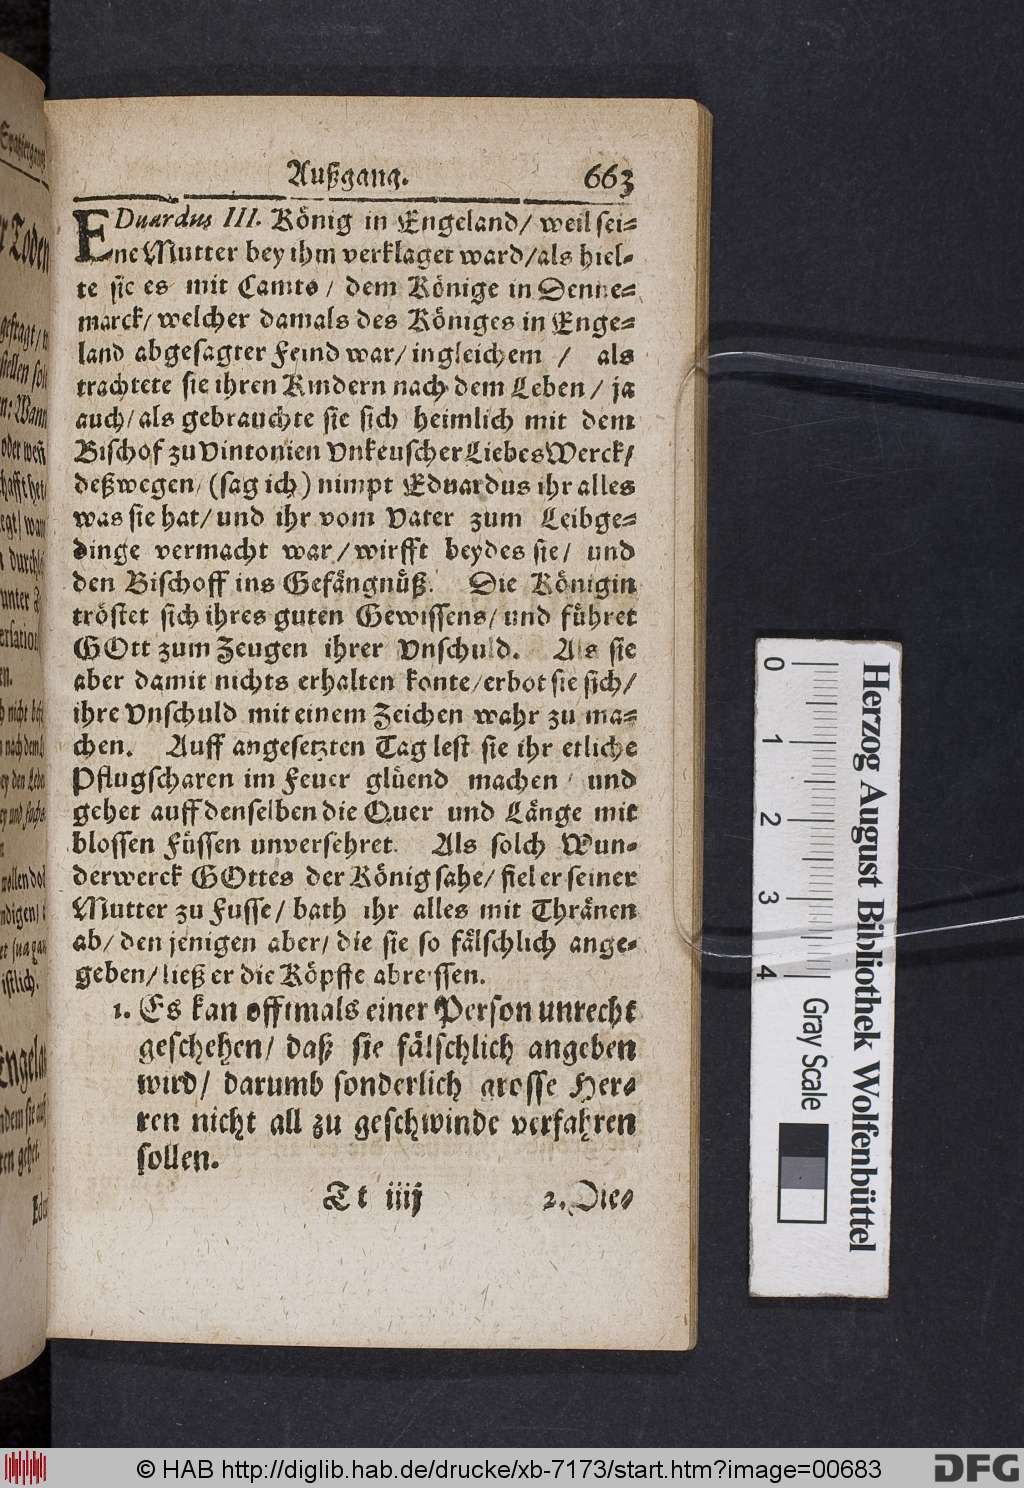 Außgang. 663
EDuardus III. König in Engeland/ weil sei=
ne Mutter bey ihm verklaget ward/als hiel=
te sie es mit Camto/ dem Könige in Denne=
marck/ welcher damals des Königes in Enge=
land abgesagter Feind war/ ingleichem / als
trachtete sie ihren Kindern nach dem Leben/ ja
auch/als gebrauchte sie sich heimlich mit dem
Bischof zu Vintonien Vnkeuscher Liebes Werck/
deßwegen/ (sag ich) nimpt Eduardus ihr alles
was sie hat/ und ihr vom Vater zum Leibge=
dinge vermacht war/ wirfft beydes sie/ und
den Bischoff ins Gefängnüß. Die Königin
tröstet sich ihres guten Gewissens/ und führet
GOtt zum Zeugen ihrer Vnschuld. Als sie
aber damit nichts erhalten konte/erbot sie sich/
ihre Vnschuld mit einem Zeichen wahr zu ma=
chen. Auff angesetzten Tag lest sie ihr etliche
Pflugscharen im Feuer glüend machen/ und
gehet auff denselben die Quer und Länge mit
blossen Füssen unversehret. Als solch Wun=
derwerck GOttes der König sahe/ fiel er seiner
Mutter zu Fusse/ bath ihr alles mit Thränen
ab/ den jenigen aber/ die sie so fälschlich ange=
geben/ ließ er die Köpffe abreissen.
1. Es kan offtmals einer Person unrecht
geschehen/ daß sie fälschlich angeben
wird/ darumb sonderlich grosse Her=
ren nicht all zu geschwinde verfahren
sollen.
Tt iiij 2. Die=
Herzog August Bibliothek Wolfenbüttel
0 1 2 3 4 Gray Scale
© HAB http://diglib.hab.de/drucke/xb-7173/start.htm?image=00683
DFG